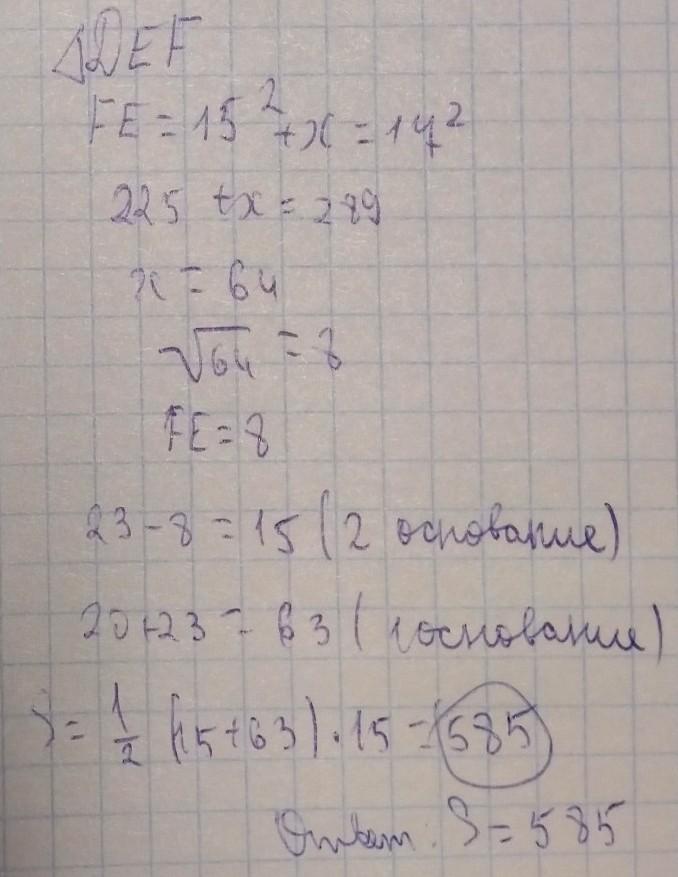 △DEF
FE = 15² + x = 17²
225 + x = 289
x = 64
√64 = 8
FE = 8
23 - 8 = 15 (2 основание)
20 + 23 = 63 (1 основание)
S = 1/2 (15 + 63) · 15 = 585
Ответ: S = 585